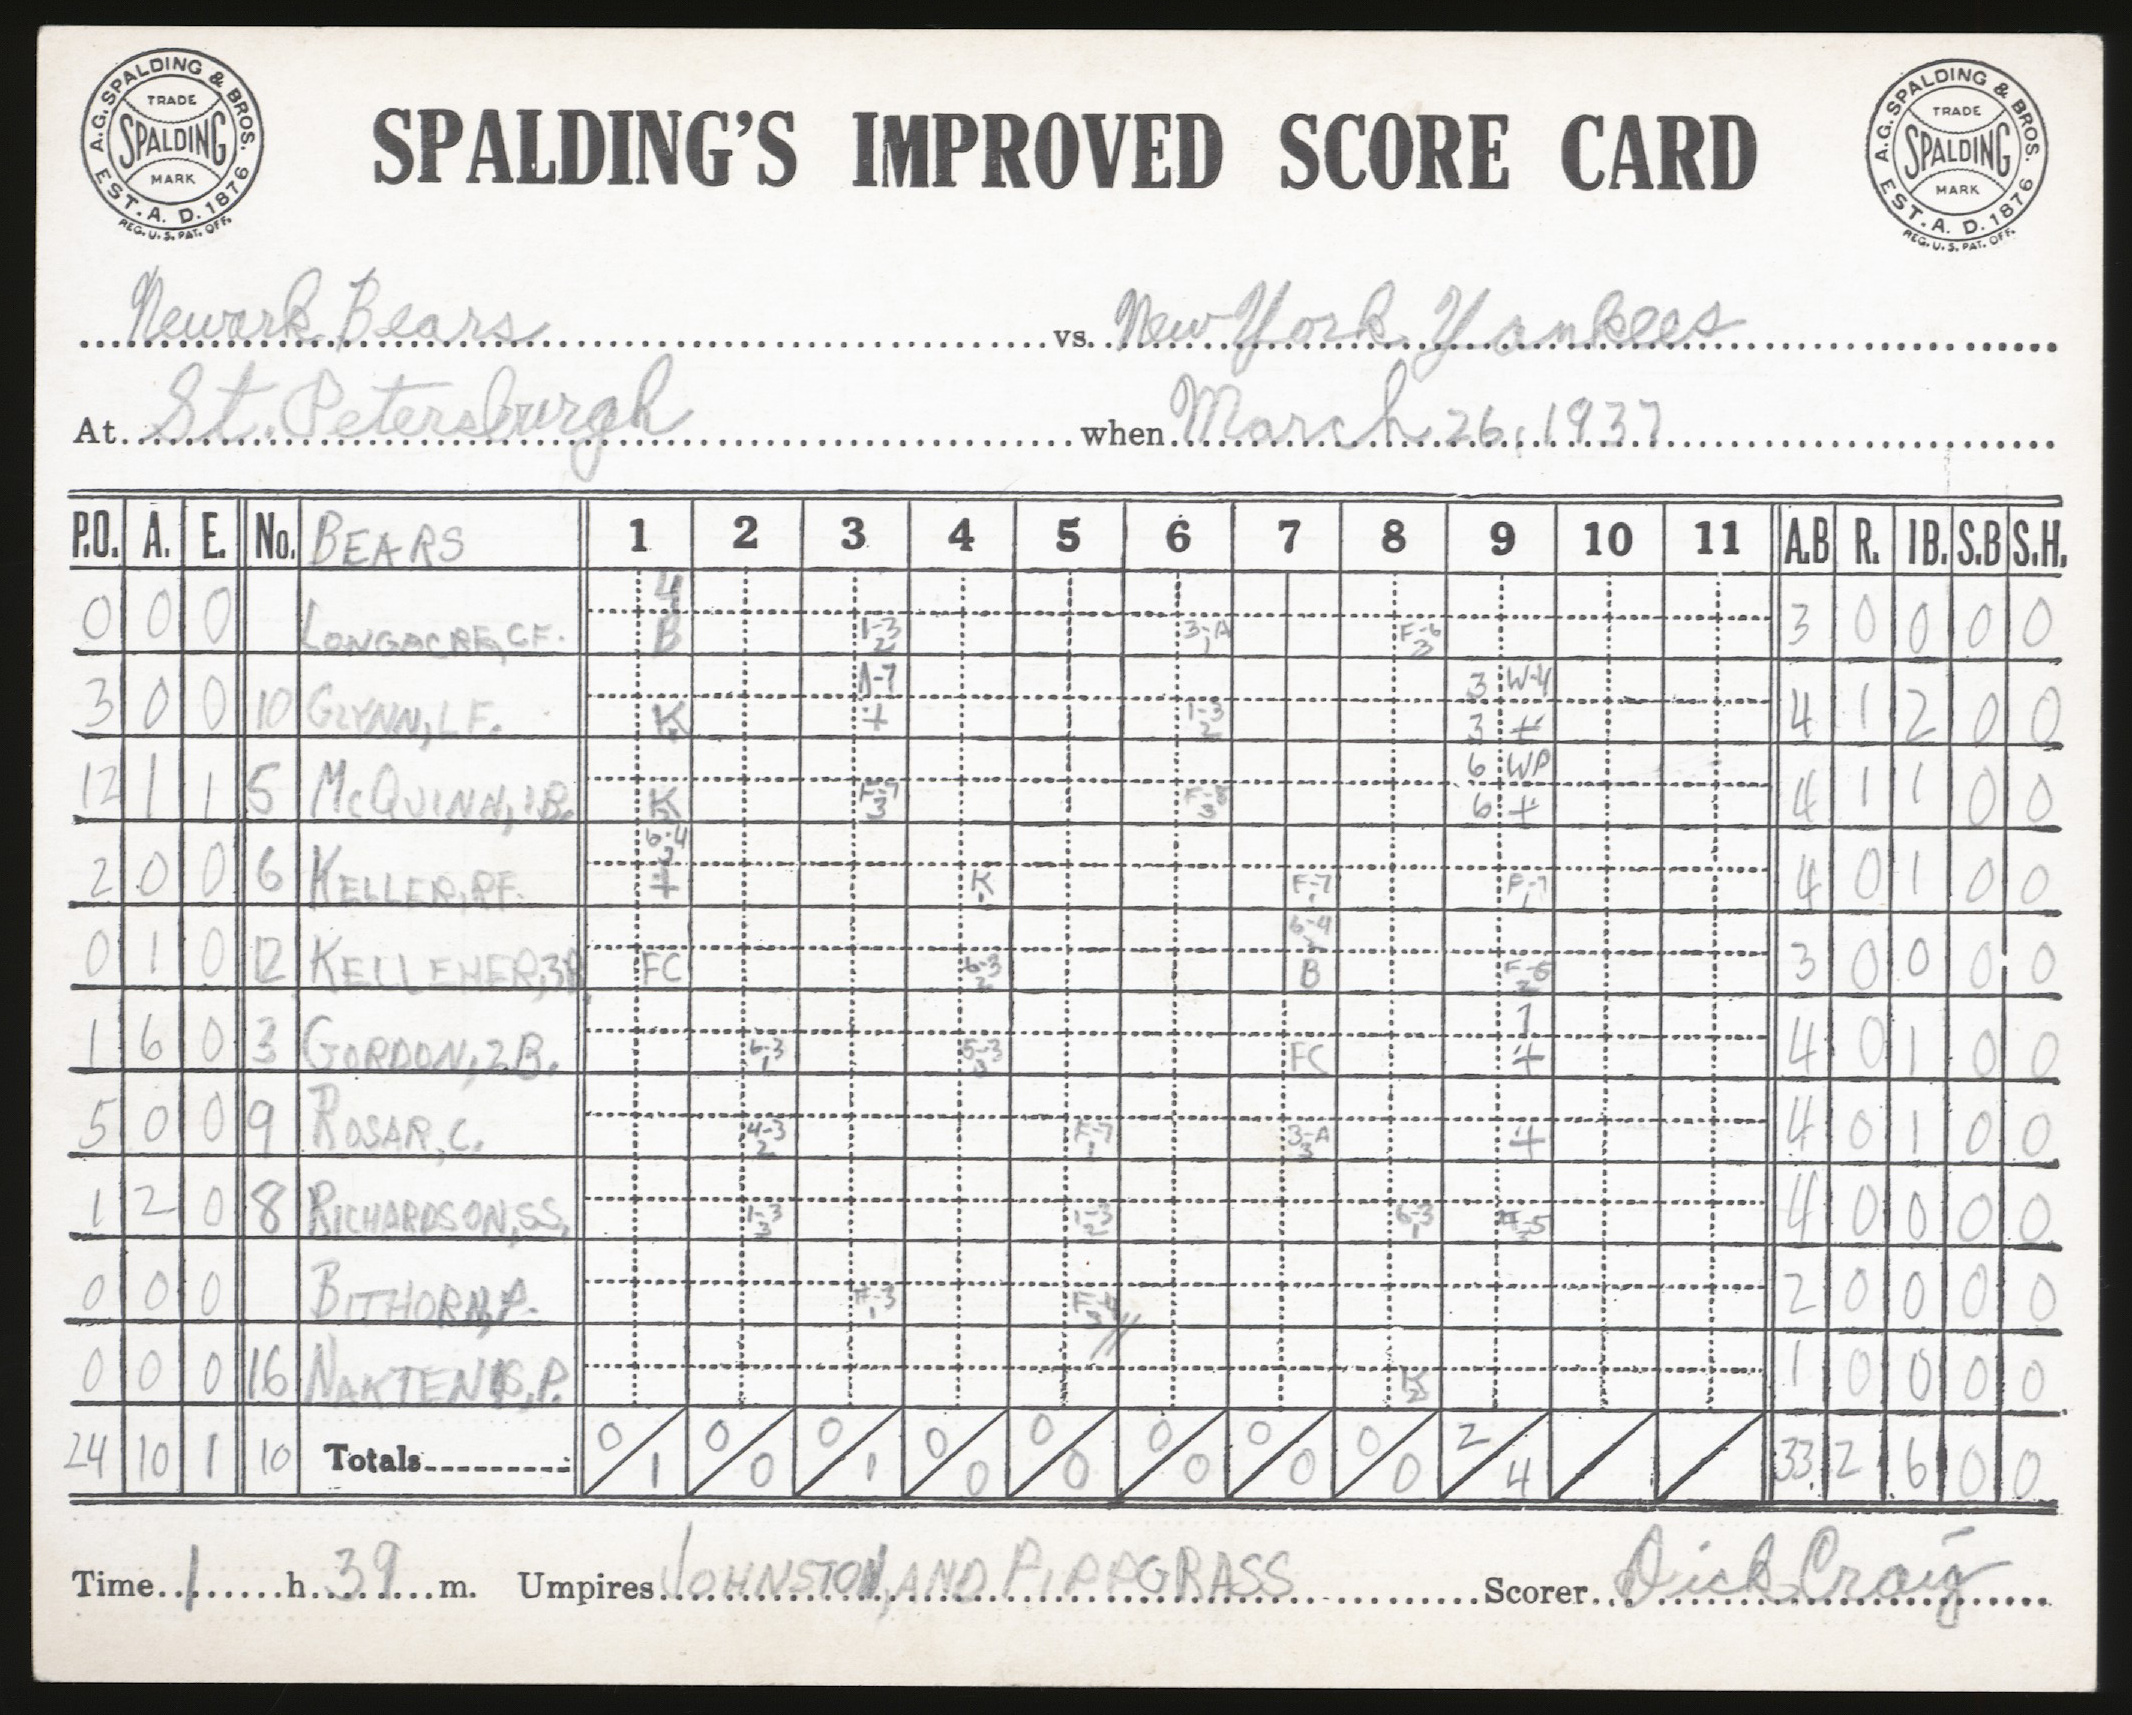 A.G. SPALDING & BROS. TRADE SPALDING MARK EST. A. D. 1876 REG. U. S. PAT. OFF.
SPALDING'S IMPROVED SCORE CARD
A.G. SPALDING & BROS. TRADE SPALDING MARK EST. A. D. 1876 REG. U. S. PAT. OFF.
Newark Bears vs. New York Yankees
At St. Petersburgh when March 26, 1937
P.O. A. E. No. BEARS 1 2 3 4 5 6 7 8 9 10 11 A.B R. 1B. S.B S.H.
4
0 0 0 LONGACRE, CF. B 1-3 2 3-A 1 F-6 3 3 0 0 0 0
A-7 3 W-4
3 0 0 10 GLYNN, LF. K + 1-3 2 3 + 4 1 2 0 0
6 WP
12 1 1 5 McQUINN, 1B. K F-7 3 3 6 + 4 1 1 0 0
6-4 3
2 0 0 6 KELLER, RF. + K F-7 F-7 4 0 1 0 0
6-4
0 1 0 12 KELLEHER, 3B. FC 6-3 2 B F-5 2 3 0 0 0 0
7
1 6 0 3 GORDON, 2B. 6-3 1 5-3 3 FC + 4 0 1 0 0
5 0 0 9 ROSAR, C. 4-3 2 F-7 1 3-A 3 + 4 0 1 0 0
1 2 0 8 RICHARDSON, SS. 1-3 3 1-3 2 6-3 1 F-5 4 0 0 0 0
0 0 0 BITHORN, P. F-3 1 F-4 3 // 2 0 0 0 0
0 0 0 16 NAKTENIS, P. K 2 1 0 0 0 0
24 10 1 10 Totals 0/1 0/0 0/1 0/0 0/0 0/0 0/0 0/0 2/4 33 2 6 0 0
Time 1 h. 39 m. Umpires JOHNSTON, AND PIPPGRASS Scorer Dick Craig